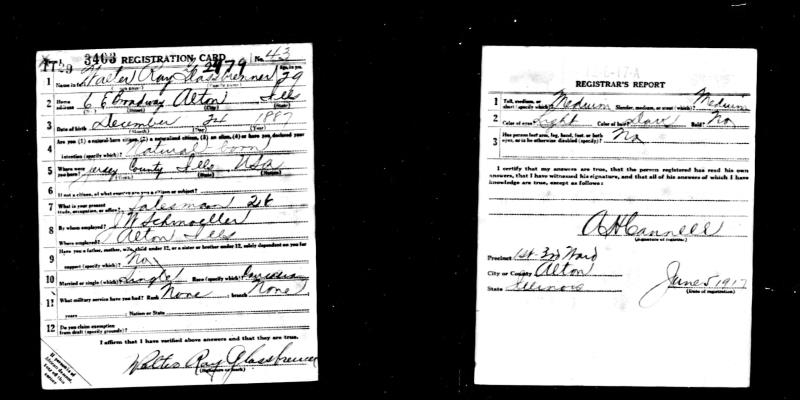 3463 REGISTRATION CARD No. 43
2479
1 Name in full Walter Ray Glassbrenner Age, in yrs. 29
2 Home address E Broadway Alton Ills
3 Date of birth December 24 1887
(Month) (Day) (Year)
4 Are you (1) a natural-born citizen, (2) a naturalized citizen, (3) an alien, (4) or have you declared your
intention (specify which)? Natural Born
5 Where were you born? Jersey County Ills. USA
(Town) (State) (Nation)
6 If not a citizen, of what country are you a citizen or subject?
7 What is your present trade, occupation, or office? Salesman
8 By whom employed? Schmoeller
Where employed? Alton Ills
9 Have you a father, mother, wife, child under 12, or a sister or brother under 12, solely dependent on you for
support (specify which)? No
10 Married or single (which)? Single Race (specify which)? Caucasian
11 What military service have you had? Rank None branch None
years Nation or State
12 Do you claim exemption from draft (specify grounds)?
I affirm that I have verified above answers and that they are true.
Walter Ray Glassbrenner
(Signature or mark)
REGISTRAR'S REPORT
1 Tall, medium, or short (specify which)? Medium Slender, medium, or stout (which)? Medium
2 Color of eyes? Light Color of hair? Dark Bald? No
3 Has person lost arm, leg, hand, foot, or both
eyes, or is he otherwise disabled (specify)? No
I certify that my answers are true, that the person registered has read his own
answers, that I have witnessed his signature, and that all of his answers of which I have
knowledge are true, except as follows:
A H Cannell
(Signature of registrar)
Precinct 1st 3rd Ward
City or County Alton
State Illinois
June 5 1917
(Date of registration)